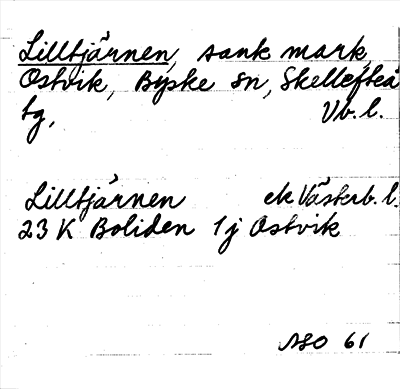 Lilltjärnen, sank mark,
Ostvik, Byske sn, Skellefteå
tg, Vb. l.
Lilltjärnen ek Västerb. l.
23 K Boliden 1 j Ostvik
ASO 61